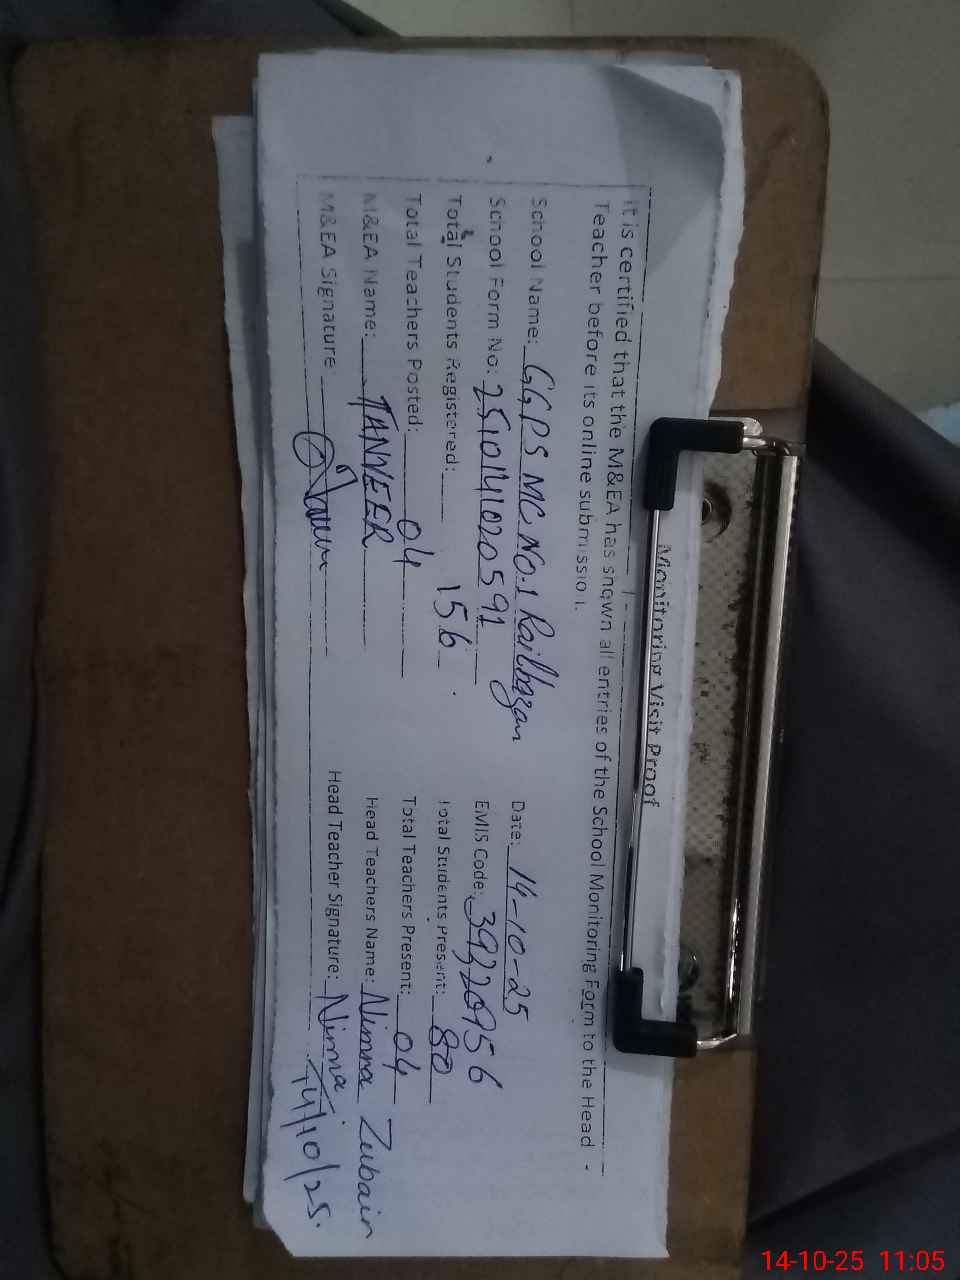 Monitoring Visit Proof
It is certified that the M&EA has shown all entries of the School Monitoring Form to the Head -
Teacher before its online submission.
School Name: GGPS MC NO.1 Railbazar Date: 14-10-25
School Form No: 25101141020591 EMIS Code: 39320956
Total Students Registered: 156 Total Students Present: 80
Total Teachers Posted: 04 Total Teachers Present: 04
M&EA Name: TANVEER Head Teachers Name: Nimra Zubair
M&EA Signature Head Teacher Signature: Nimra
14/10/25.
14-10-25 11:05